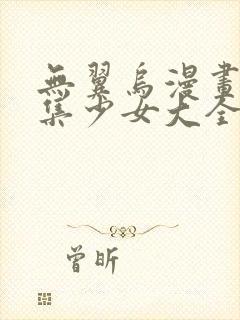 無翼烏漫畫
集少女大全
曾昕